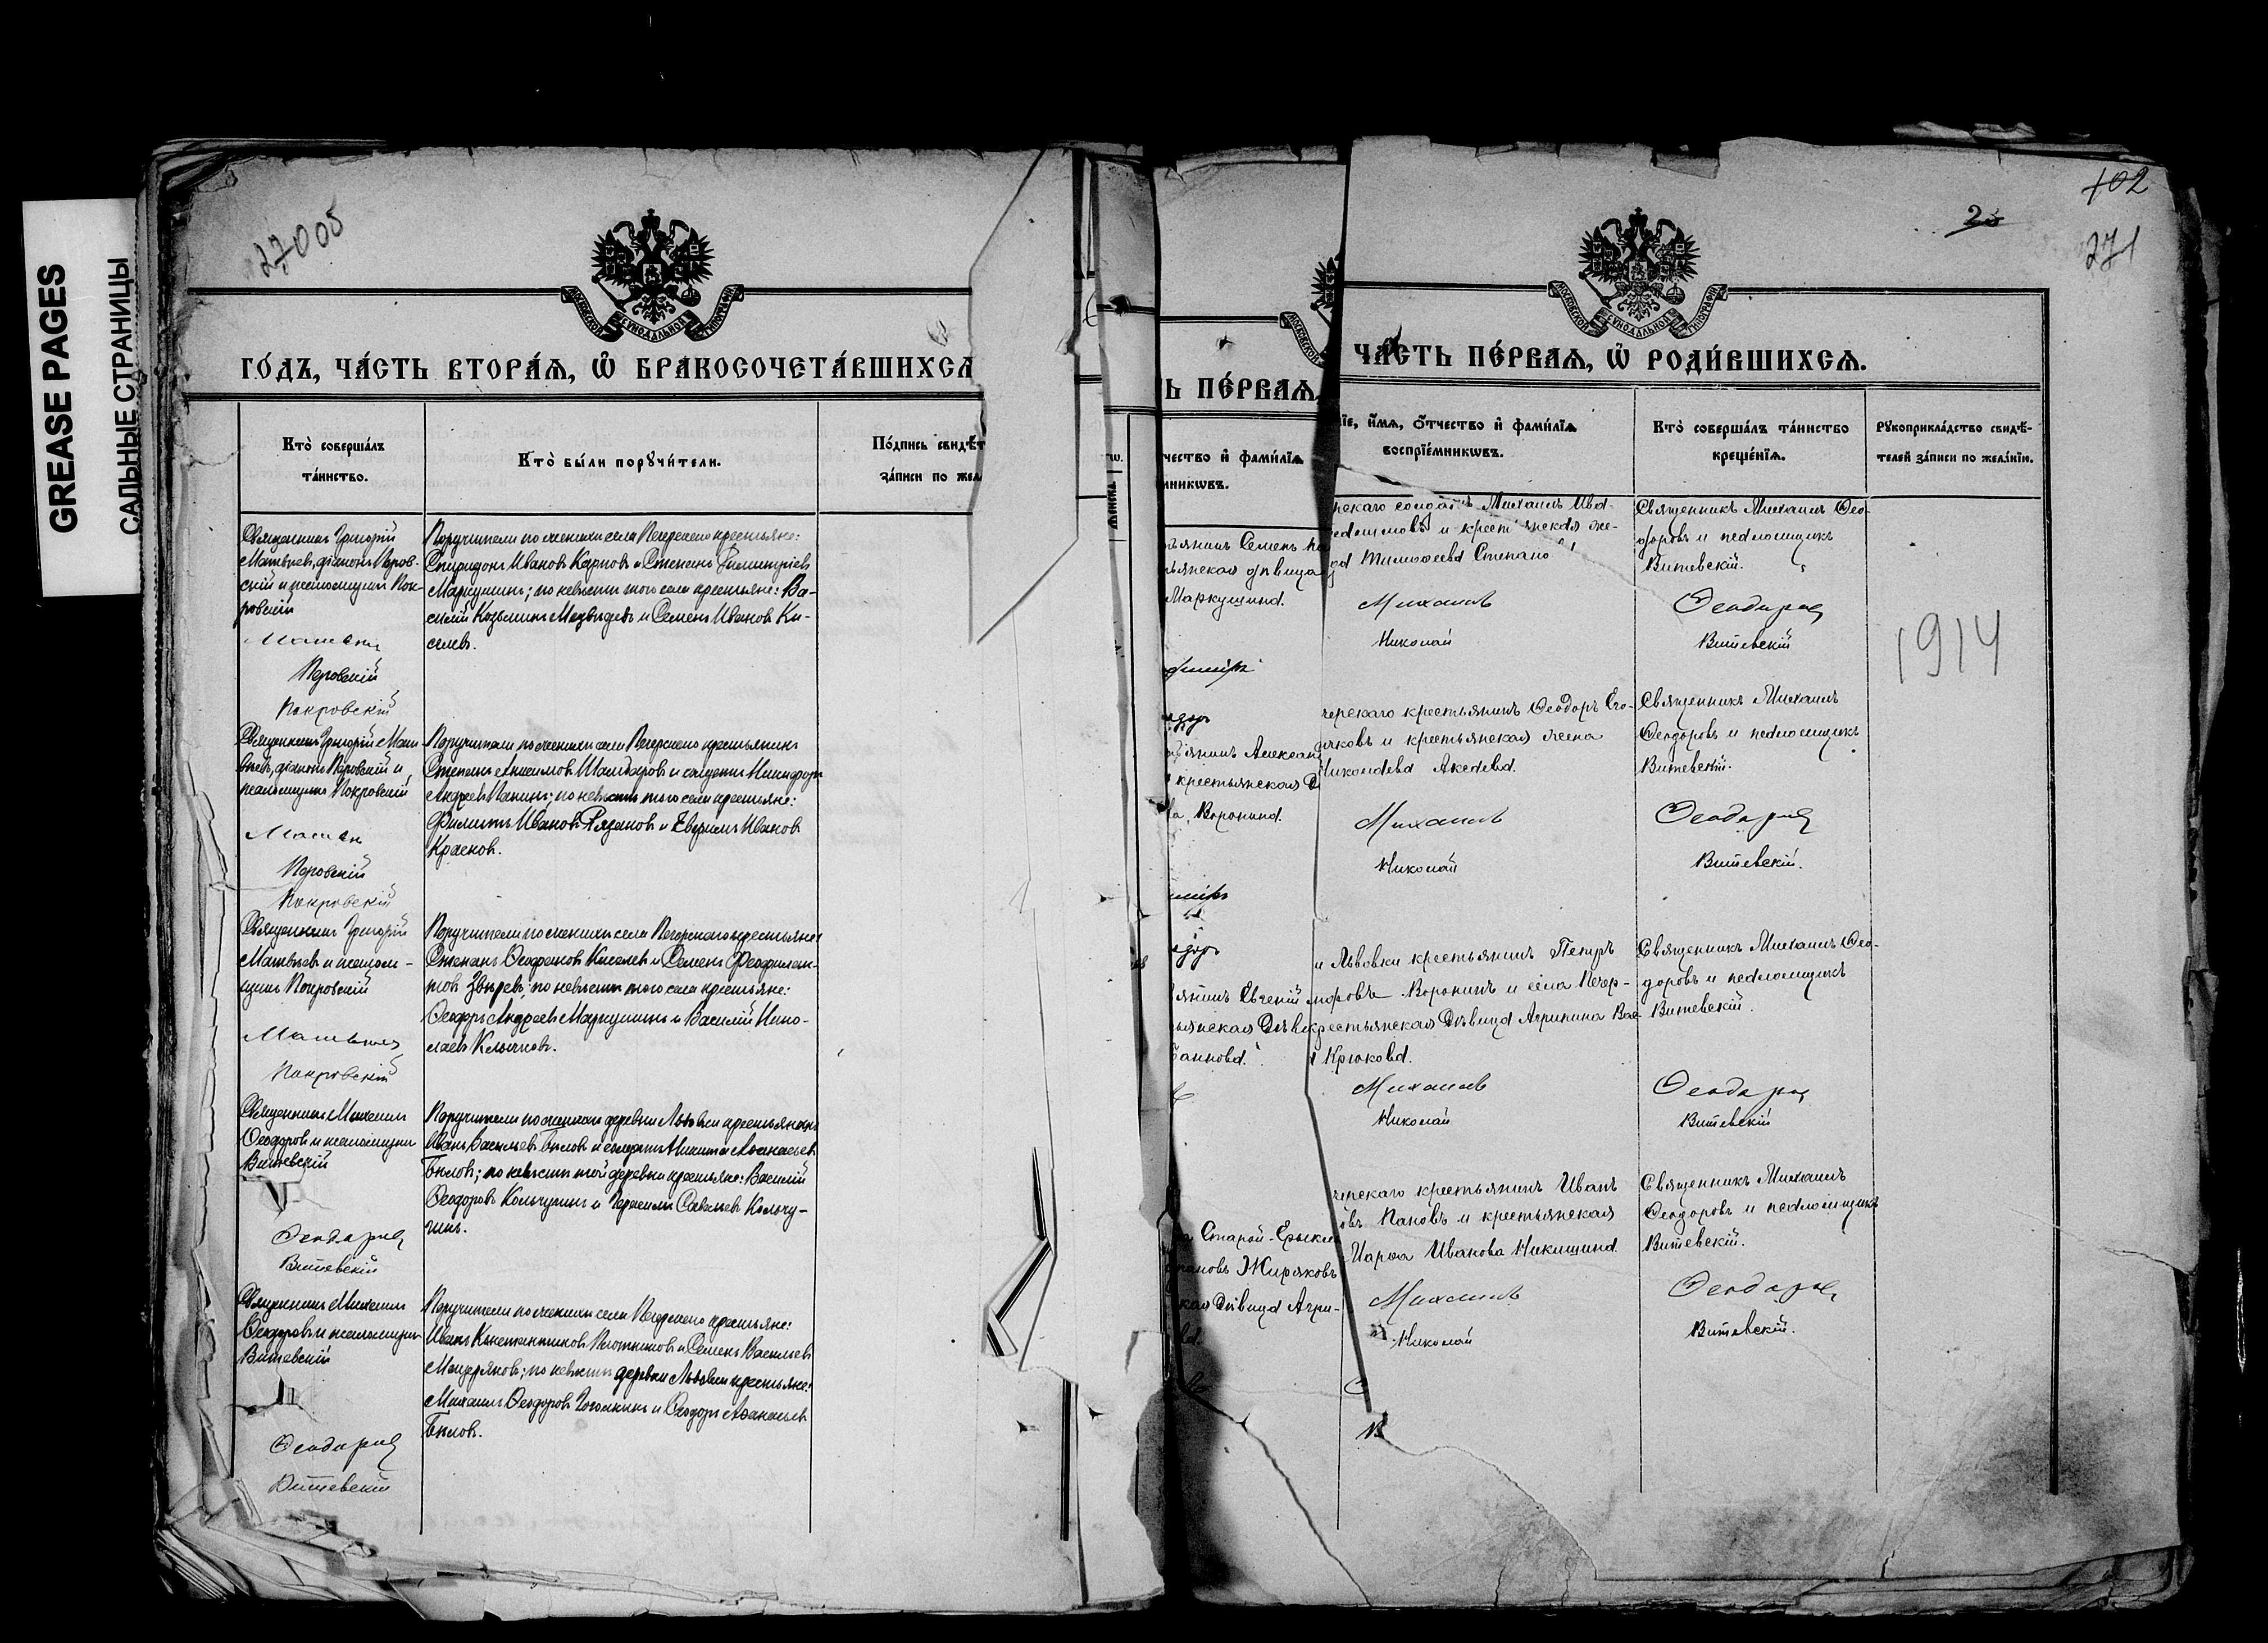 GREASE PAGES
САЛЬНЫЕ СТРАНИЦЫ
27005
МОСКОВСКОЙ СѴНОДАЛЬНОЙ ТИПОГРАФІИ
ГО́ДЪ, ЧА́СТЬ ВТОРА́Ѧ, Ѽ БРАКОСОЧЕТА́ВШИХСѦ
Кто̀ соверша́лъ
та́инство.
Кто̀ бы́ли порꙋчи́тели.
По́дпись свидѣ́т
за́писи по жел
Священникъ Григорій
Матвѣевъ, діаконъ Перов-
скій и псаломщикъ Пок-
ровскій
Перовскій
Покровскій
Поручители по женихѣ села Печерскаго крестьяне:
Спиридонъ Ивановъ Карповъ и Степанъ Димитріевъ
Маркушинъ; по невѣстѣ того села крестьяне: Ва-
силій Козьминъ Медвѣдевъ и Семенъ Ивановъ Ки-
селевъ.
Священникъ Григорій Мат-
вѣевъ, діаконъ Перовскій и
псаломщикъ Покровскій
Перовскій
Покровскій
Поручители по женихѣ села Печерскаго крестьянинъ
Степанъ Анисимовъ Шандаровъ и солдатъ Никифоръ
Андреевъ Папинъ; по невѣстѣ того села крестьяне:
Филиппъ Ивановъ Рязановъ и Ефремъ Ивановъ
Красновъ.
Священникъ Григорій
Матвѣевъ и псалом-
щикъ Покровскій
Матвѣевъ
Покровскій
Поручители по женихѣ села Печерскаго крестьяне:
Степанъ Киселевъ и Семенъ Феофилак-
товъ Звѣревъ; по невѣстѣ того села крестьяне:
Ѳеодоръ Андреевъ Маркушинъ и Василій Нико-
лаевъ Клычковъ.
Священникъ Михаилъ
Ѳеодоровъ и псаломщикъ
Витевскій
Ѳеодоровъ
Витевскій
Поручители по женихѣ деревни Львовки крестьянинъ
Иванъ Васильевъ Бѣловъ и солдатъ Никита Аѳанасьевъ
Бѣловъ; по невѣстѣ той деревни крестьяне: Василій
Ѳеодоровъ Кольчугинъ и Герасимъ Савельевъ Кольчу-
гинъ.
Священникъ Михаилъ
Ѳеодоровъ и псаломщикъ
Витевскій
Ѳеодоровъ
Витевскій
Поручители по женихѣ села Печерскаго крестьяне:
Иванъ Константиновъ Плотниковъ и Семенъ Васильевъ
Мещеряковъ; по невѣстѣ деревни Львовки крестьяне:
Михаилъ Ѳеодоровъ Гоголкинъ и Ѳеодоръ Аѳанасьевъ
Бѣловъ.
Ь ПЕ́РВАѦ,
чество и҆ фами́лїѧ
мникѡвъ.
ьянинъ Семенъ
ьянская дѣвица
Маркушина.
ьянинъ Алексан
крестьянская
Воронина.
янинъ Евгеній
ьянская Дѣви
Старой-Ерыкл
пановъ Жиряковъ
кая Дѣвица Агри-
102
23
271
МОСКОВСКОЙ СѴНОДАЛЬНОЙ ТИПОГРАФІИ
ЧА́СТЬ ПЕ́РВАѦ, Ѽ РОДИ́ВШИХСѦ.
їе, и҆́мѧ, ѻ҆́тчество и҆ фами́лїѧ
воспрїе́мникѡвъ.
Кто̀ соверша́лъ та́инство
креще́нїѧ.
Рꙋкоприкла́дство свидѣ́-
телей за́писи по жела́нїю.
рскаго солдатъ Михаилъ Ива-
и крестьянская же-
Тимоѳеева Степанова
Михаилъ
Николай
Священникъ Михаилъ Ѳео-
доровъ и псаломщикъ
Витевскій.
Ѳеодоровъ
Витевскій
1914
черскаго крестьянинъ Ѳеодоръ Его-
яковъ и крестьянская жена
Николаева Аксева.
Михаилъ
Николай
Священникъ Михаилъ
Ѳеодоровъ и псаломщикъ
Витевскій.
Ѳеодоровъ
Витевскій.
и Львовки крестьянинъ Петръ
Воронинъ и села Печер-
крестьянская Дѣвица Агрипина Вас
Крюкова.
Михаилъ
Николай
Священникъ Михаилъ Ѳео-
доровъ и псаломщикъ
Витевскій.
Ѳеодоровъ
Витевскій
черскаго крестьянинъ Иванъ
овъ Пановъ и крестьянская
Марѳа Иванова Никишина.
Михаилъ
Николай
Священникъ Михаилъ
Ѳеодоровъ и псаломщикъ
Витевскій.
Ѳеодоровъ
Витевскій.